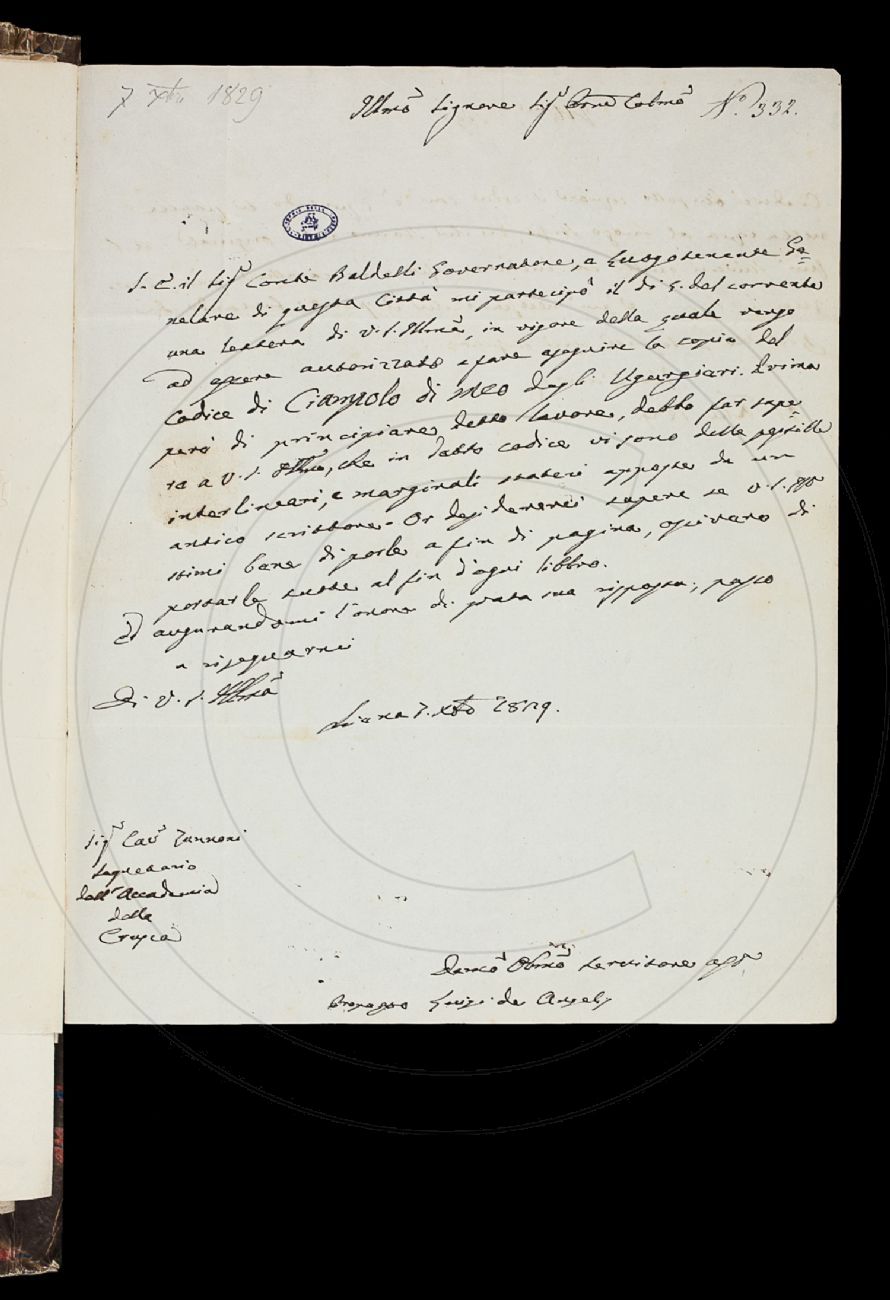 7 Xbre 1829
Illmo Signore Sigr Prne Colmo No. 332.
S. E. il Sigr Conte Baldelli Governatore, e Luogotenente Ge=
nerale di questa Città mi partecipò il dì 5. del corrente
una lettera di V. S. Illma, in vigore della quale vengo
ad essere autorizzato a fare eseguire la copia del
Codice di Ciampolo di Meo degli Ugurgieri. Prima
però di principiare detto lavoro, debbo far sape=
re a V. S. Illma, che in detto codice vi sono delle postille
interlineari, e marginali statevi apposte da un
antico scrittore. Or desidererei sapere se V. S.
stimi bene di porle a fin di pagina, ossivero di
portarle tutte al fin d'ogni libbro.
Ed augurandomi l'onore di grata sua risposta; passo
a risegnarmi
Di V. S. Illma
Siena 7. Xbre 1829.
Sigr Cavr Zannoni
Segretario
dell' Accademia
della
Crusca
Devmo Obbmo Servitore
Luigi de Angelis